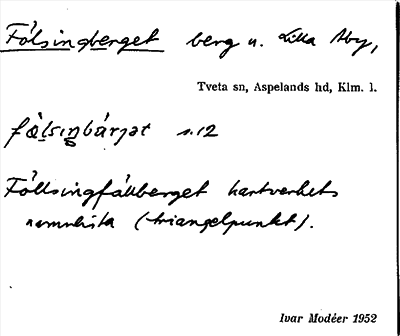 Fölsingberget berg n. Lilla Aby,
Tveta sn, Aspelands hd, Klm. l.
fœ̀lsıŋbárjət s. 12
Föllsingfällberget kartverkets
namnlista (triangelpunkt).
Ivar Modéer 1952